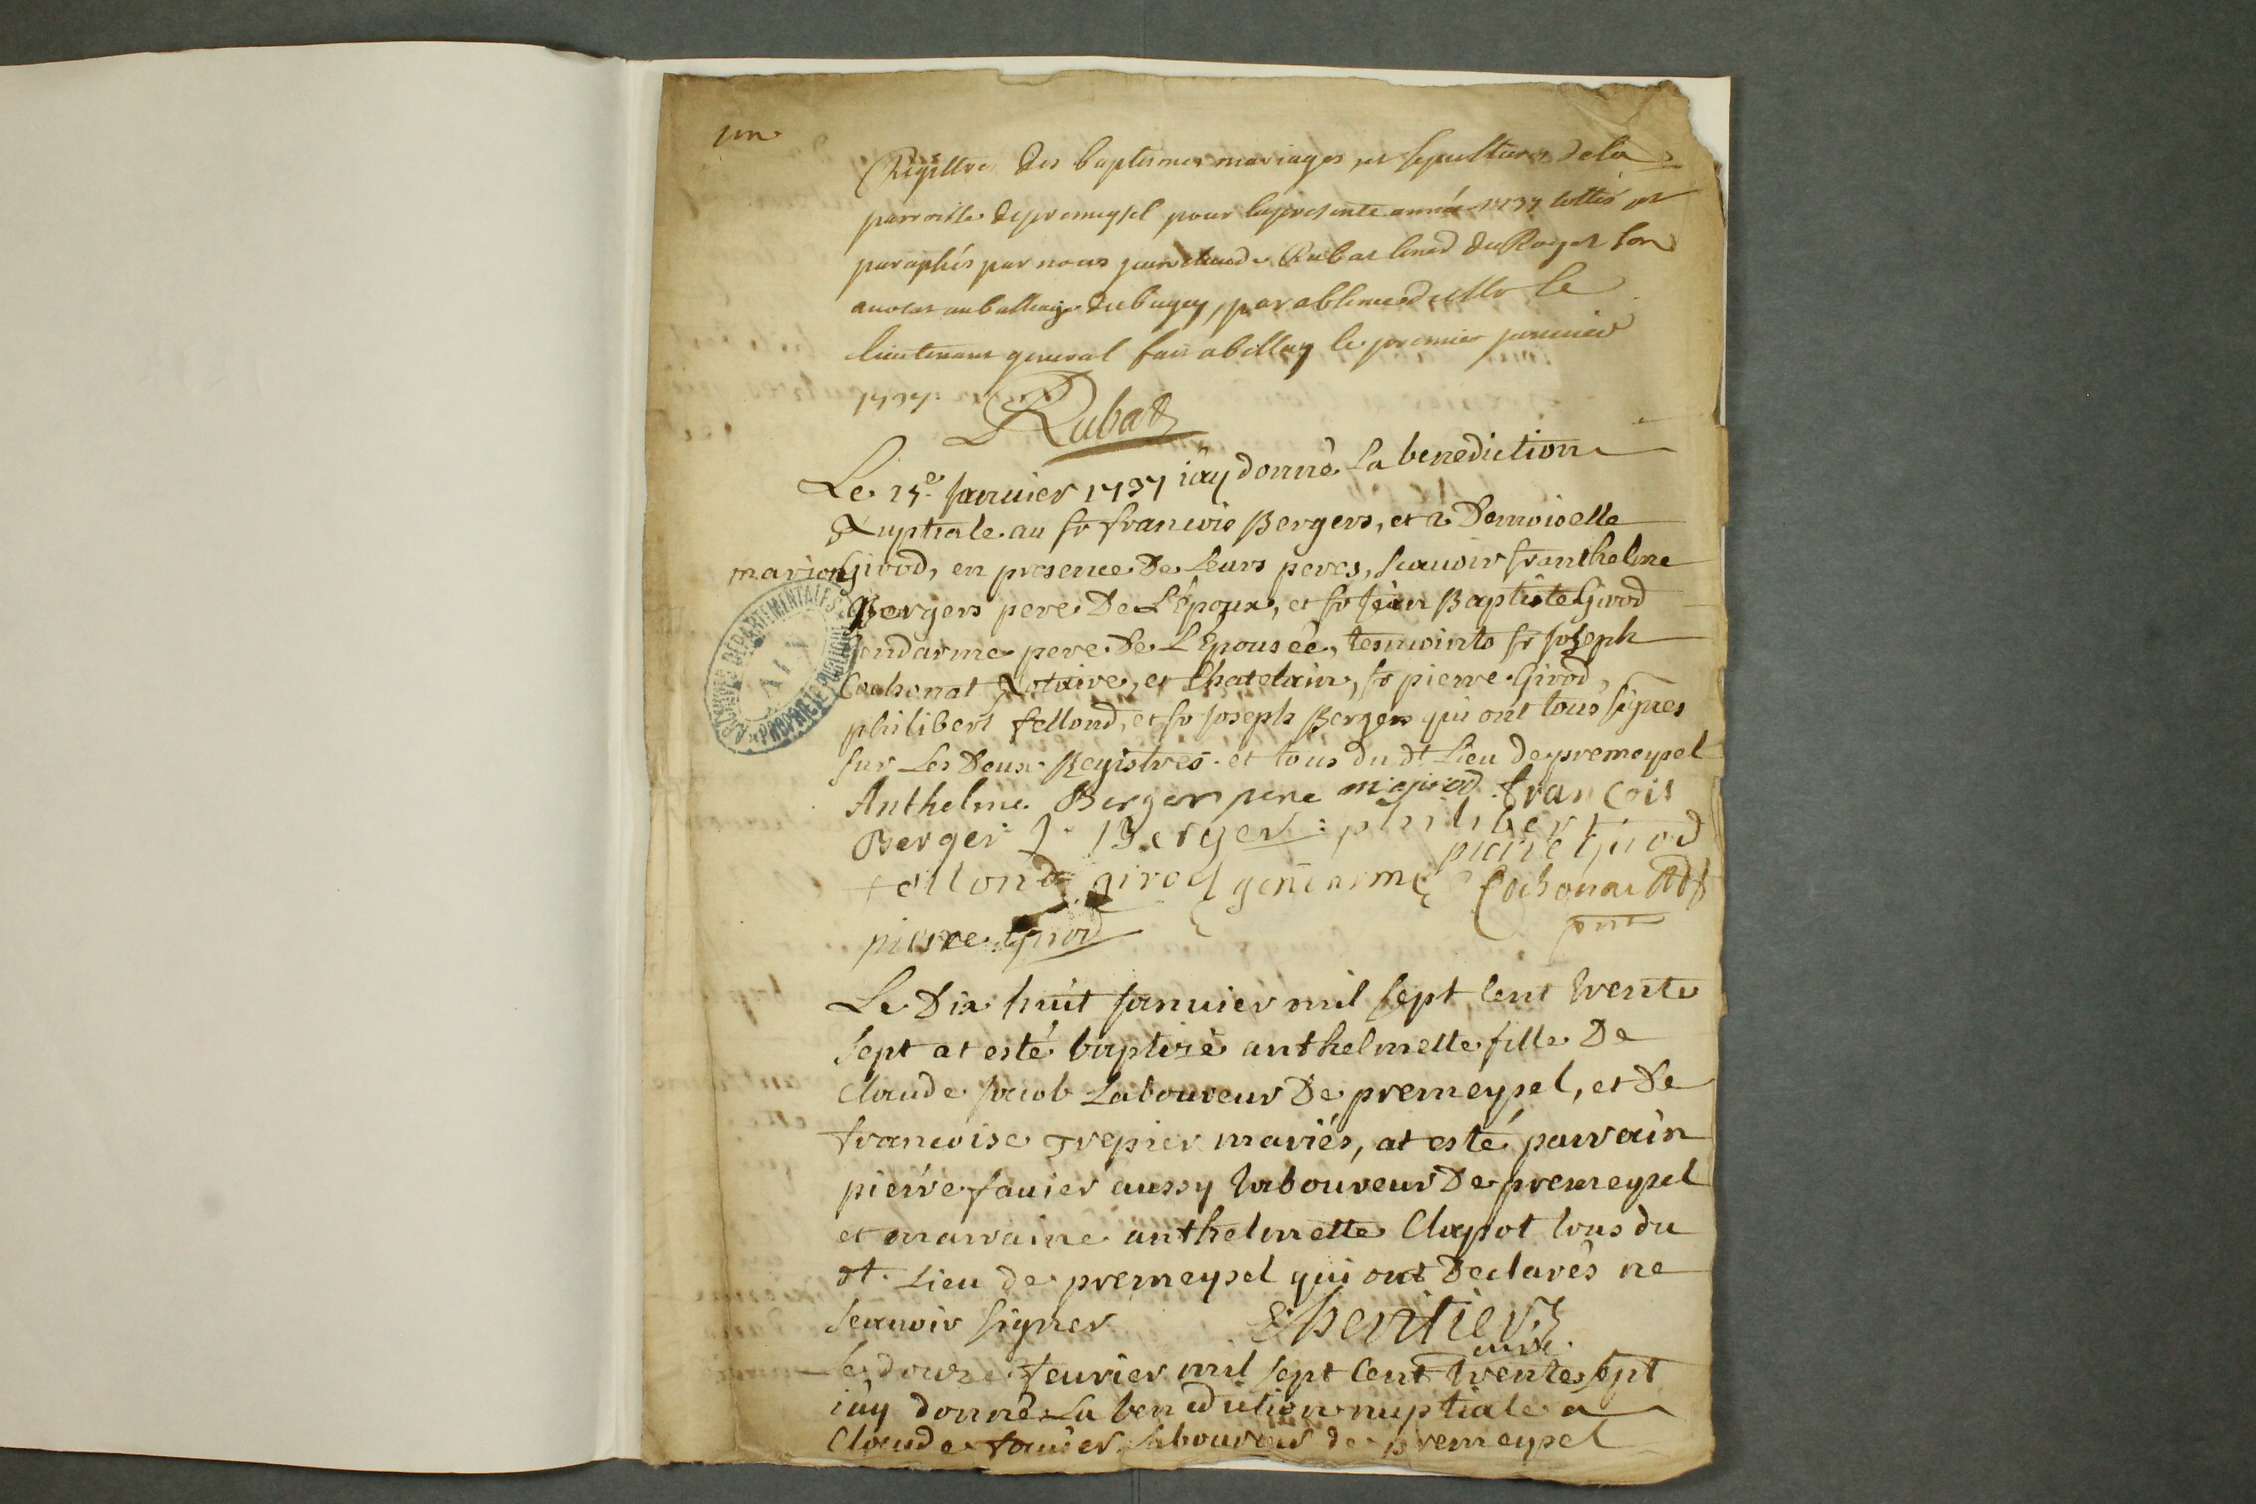 un
Registre des baptesmes mariages et sepultures de la
parroisse de premeysel pour la presente année 1737 cottés et
paraphés par nous jean claude Rubat Con.er du Roy et son
avocat au balliage du bugey, par absence de Mr le
lieutenant general fait a bellay le premier janvier
1737. Rubat
Le 15e. Janvier 1737 iay donné La benediction
Nuptiale au sr francois Bergers, et a Demoiselle
marion Girod, en presence De Leurs peres, scauoir sr anthelme
Bergers pere De L'Epoux, et sr Jean Baptiste Girod
Gendarme pere De L'Epouseé, temoints sr Joseph
Cochonat Notaire, et Chatelain, sr pierre Girod,
philibert fellond, et sr Joseph Bergers qui ont tous signes
sur Les Deux Registres. et tous du dt Lieu de premeysel
Anthelme Berger pere m girod françois
Berger J. Berger : philibert
pierre Girod
fellond girod gendarme Cochonat
pnt
pierre girod
Le Dix huit Januier mil sept cent trente
sept at esté baptizé anthelmette fille De
Claude Jacob Laboureur De premeysel, et De
francoise Trepier mariés, at esté parrain
pierre fauier aussy laboureur De premeysel
et marraine anthelmette Clapot tous du
dt. Lieu de premeysel qui ont Declarés ne
scauoir signer Lheritier
curé
Le douze feurier mil sept cent trente sept
iay donné La benediction nuptiale a
Claude fauier laboureur de premeysel
ARCHIVES DÉPARTEMENTALES
AIN
PROPRIÉTÉ PUBLIQUE